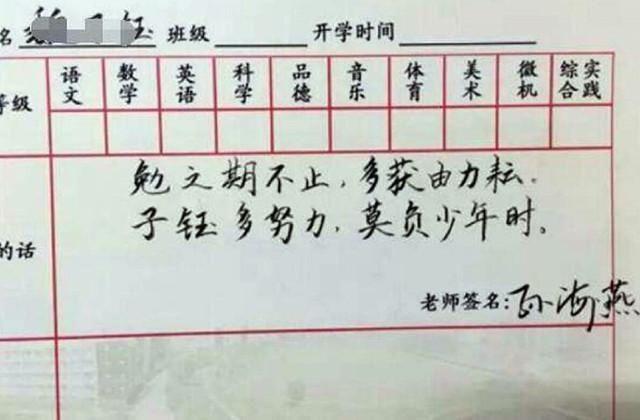 名 钰 班级 开学时间
等级 语文 数学 英语 科学 品德 音乐 体育 美术 微机 综合实践
勉之期不止,多获由力耘.
子钰多努力,莫负少年时。
的话
老师签名:孙海燕